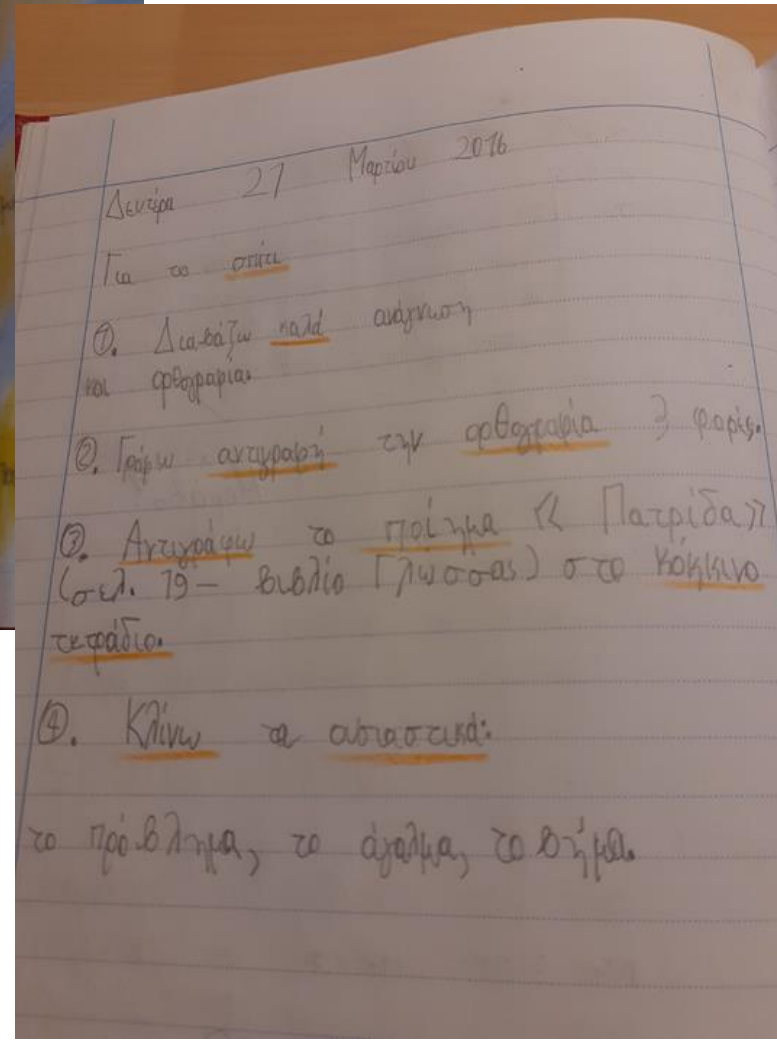 Δευτέρα 21 Μαρτίου 2016
Για το σπίτι
①. Διαβάζω καλά ανάγνωση
και ορθογραφία.
②. Γράφω αντιγραφή την ορθογραφία 3 φορές.
③. Αντιγράφω το ποίημα « Πατρίδα»
(σελ. 79 – βιβλίο Γλώσσας) στο κόκκινο
τετράδιο.
④. Κλίνω τα ουσιαστικά:
το πρόβλημα, το άγαλμα, το βήμα.